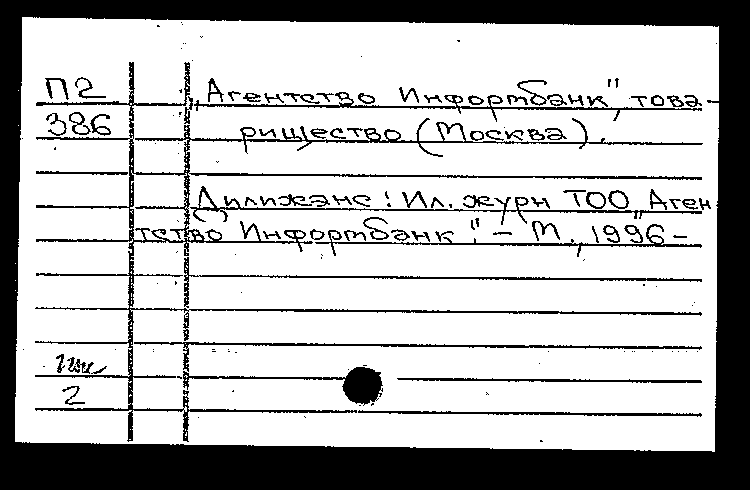 П2
386
„Агентство Информбанк", това-
рищество (Москва).
Дилижанс: Ил. журн ТОО „Аген
тство Информбанк". – М., 1996 –
2